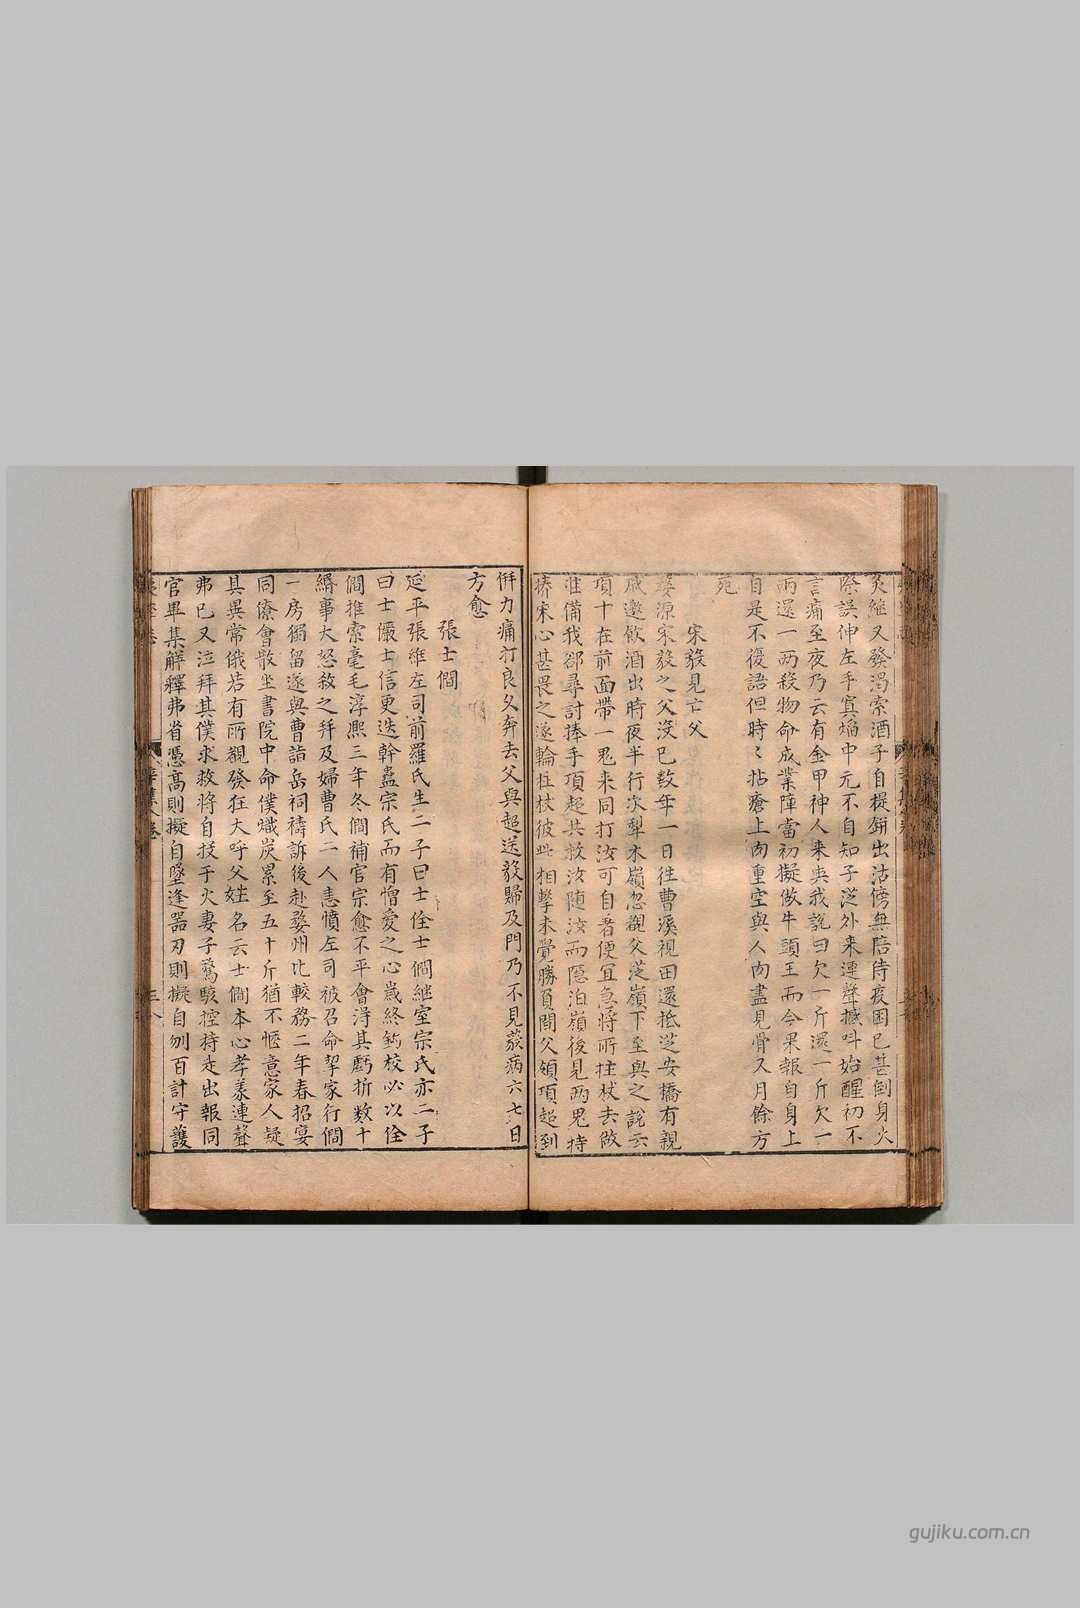 炙繼又發渴索酒子自提餅出沽傍無陪侍疲困已甚倒身火
際誤伸左手寘焰中元不自知子從外来連聲撼呌始醒初不
言痛至夜乃云有金甲神人来與我說曰欠一斤還一斤欠一
兩還一兩殺物命成業障當初擬做牛頭王而今果報自身上
自是不復語但時〻拈瘡上肉重空與人肉盡見骨又月餘方
死
宋毅見亡父
婺源宋毅之父沒已数年一日徃曹溪視田還抵芝安橋有親
戚邀飲酒出時夜半行次犁木嶺忽覩父茫嶺下至與之說云
項十在前面帶一鬼来同打汝可自著便宜急将所拄杖去做
准備我郤尋討捧手項超共救汝随汝而隱泊嶺後見兩鬼持
捧宋心甚畏之遂輪柱杖彼此相擊未覺勝負間父領項超到
倂力痛打良久奔去父與超送毅歸及門乃不見𤼵病六七日
方愈
張士僩
延平張維左司前羅氏生二子曰士佺士僩継室宗氏亦二子
曰士儼士信更迭幹蠱宗氏而有憎愛之心歳終鈎校必以佺
僩推索毫毛淳熈三年冬僩補官宗愈不平會淂其虧折数十
緡事大怒敘之拜及婦曹氏二人恚憤左司被召命挈家行僩
一房獨留遂與曹詣岳祠禱訴後赴婺州比較務二年春招宴
同僚會散坐書院中命僕熾炭累至五十斤猶不愜意家人疑
其異常俄若有所覩發狂大呼父姓名云士僩本心孝義連聲
弗已又泣拜其僕求救将自投于火妻子驚駭控持走出報同
官畢集解釋弗省憑髙則擬自墜逢器刃則擬自刎百計守護